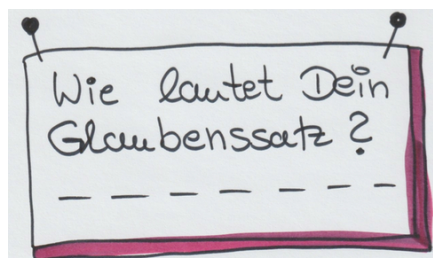 Wie lautet Dein
Glaubenssatz?